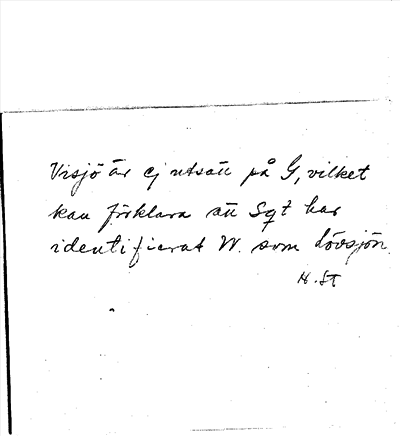 Visjö är ej utsatt på G, vilket
kan förklara att Sqt har
identifierat W. som Lövsjön.
H. ST